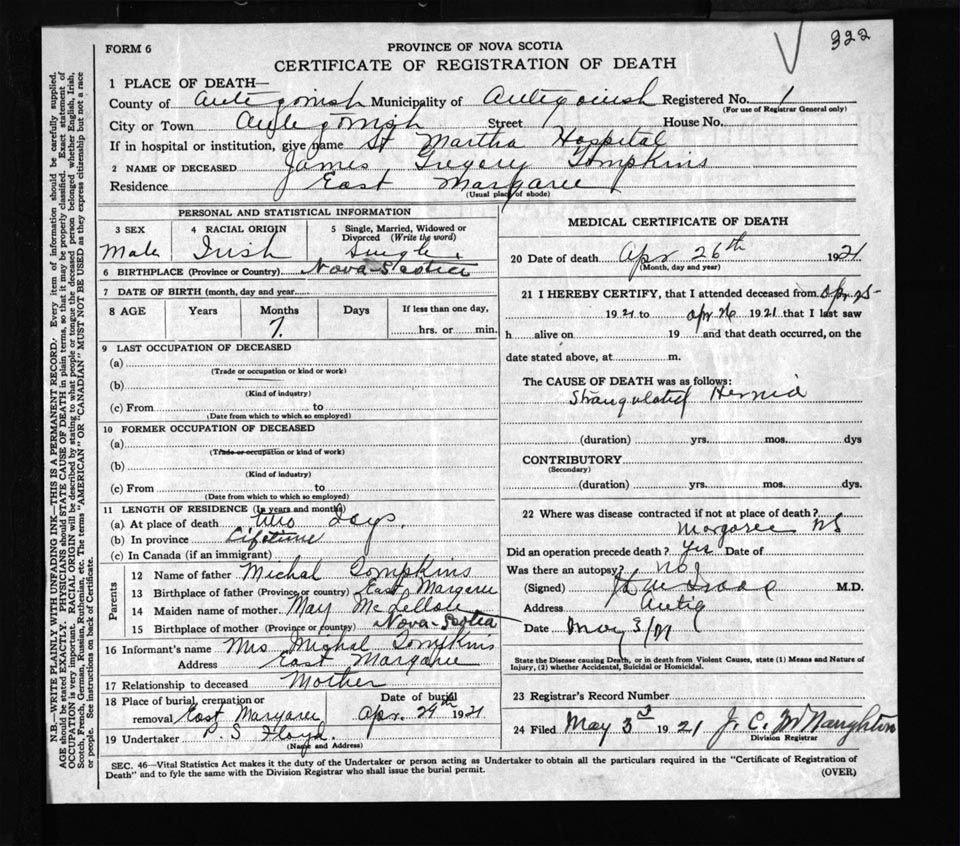 FORM 6
PROVINCE OF NOVA SCOTIA
322
CERTIFICATE OF REGISTRATION OF DEATH
1 PLACE OF DEATH—
County of Antigonish Municipality of Antigonish Registered No. 1
(For use of Registrar General only)
City or Town Antigonish Street House No.
If in hospital or institution, give name St Martha Hospital
2 NAME OF DECEASED James Gregory Tompkins
Residence East Margaree
(Usual place of abode)
PERSONAL AND STATISTICAL INFORMATION
3 SEX 4 RACIAL ORIGIN 5 Single, Married, Widowed or
Divorced (Write the word)
Male Irish Single
6 BIRTHPLACE (Province or Country) Nova Scotia
7 DATE OF BIRTH (month, day and year)
8 AGE Years Months Days If less than one day,
7 hrs. or min.
9 LAST OCCUPATION OF DECEASED
(a)
(Trade or occupation or kind or work)
(b)
(Kind of industry)
(c) From to
(Date from which to which so employed)
10 FORMER OCCUPATION OF DECEASED
(a)
(Trade or occupation or kind of work)
(b)
(Kind of industry)
(c) From to
(Date from which to which so employed)
11 LENGTH OF RESIDENCE (In years and months)
(a) At place of death two days
(b) In province Lifetime
(c) In Canada (if an immigrant)
Parents
12 Name of father Michal Tompkins
13 Birthplace of father (Province or country) East Margaree
14 Maiden name of mother May
15 Birthplace of mother (Province or country) Nova-Scotia
16 Informant's name Mrs Michal Tompkins
Address East Margaree
17 Relationship to deceased Mother
18 Place of burial, cremation or Date of burial
removal East Margaree Apr. 29th 1921
19 Undertaker P. S Floyd.
(Name and Address)
MEDICAL CERTIFICATE OF DEATH
20 Date of death Apr 26th 1921
(Month, day and year)
21 I HEREBY CERTIFY, that I attended deceased from Apr. 25-
1921 to Apr 26 1921 that I last saw
h alive on 19 and that death occurred, on the
date stated above, at m.
The CAUSE OF DEATH was as follows:
Strangulated Hernia
(duration) yrs. mos. dys
CONTRIBUTORY
(Secondary)
(duration) yrs. mos. dys.
22 Where was disease contracted if not at place of death?
Margaree NS
Did an operation precede death? Yes Date of
Was there an autopsy? No
(Signed) M.D.
Address Antig
Date May 3/21
State the Disease causing Death, or in death from Violent Causes, state (1) Means and Nature of
Injury, (2) whether Accidental, Suicidal or Homicidal.
23 Registrar's Record Number
24 Filed May 3rd 1921 J. C. McNaughton
Division Registrar
SEC. 46—Vital Statistics Act makes it the duty of the Undertaker or person acting as Undertaker to obtain all the particulars required in the "Certificate of Registration of
Death" and to fyle the same with the Division Registrar who shall issue the burial permit.
(OVER)
N.B.—WRITE PLAINLY WITH UNFADING INK—THIS IS A PERMANENT RECORD. Every item of information should be carefully supplied.
AGE should be stated EXACTLY. PHYSICIANS should STATE CAUSE OF DEATH in plain terms, so that it may be properly classified. Exact statement of
OCCUPATION is very important. RACIAL ORIGIN will be described by stating to what people or tongue the deceased person belonged, whether English, Irish,
Scotch, French, German, Russian, Ruthenian, etc. The terms "AMERICAN" OR "CANADIAN" MUST NOT BE USED as they express citizenship but not a race
or people. See instructions on back of Certificate.